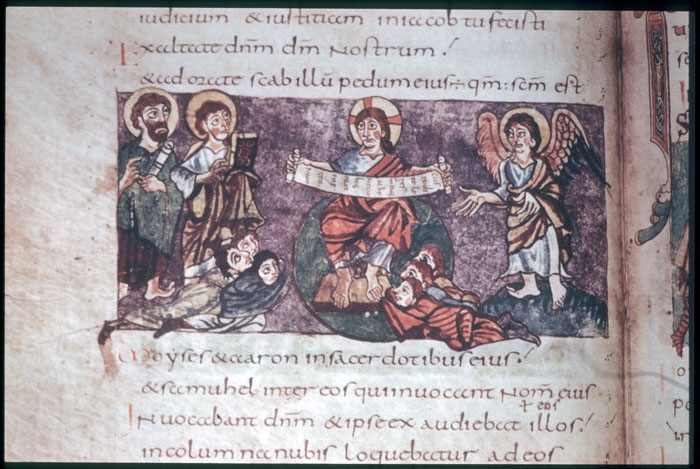 iudicium & iustitiam in iacob tu fecisti
Exaltate dnm dm nostrum
& adorate scabillū pedum eius qm̄ scm̄ est
Moyses & aaron in sacerdotibus eius
& samuhel inter eos qui inuocant nom̄ eius
eos
Inuocabant dnm̄ & ipse exaudiebat illos
in columna nubis loquebatur ad eos